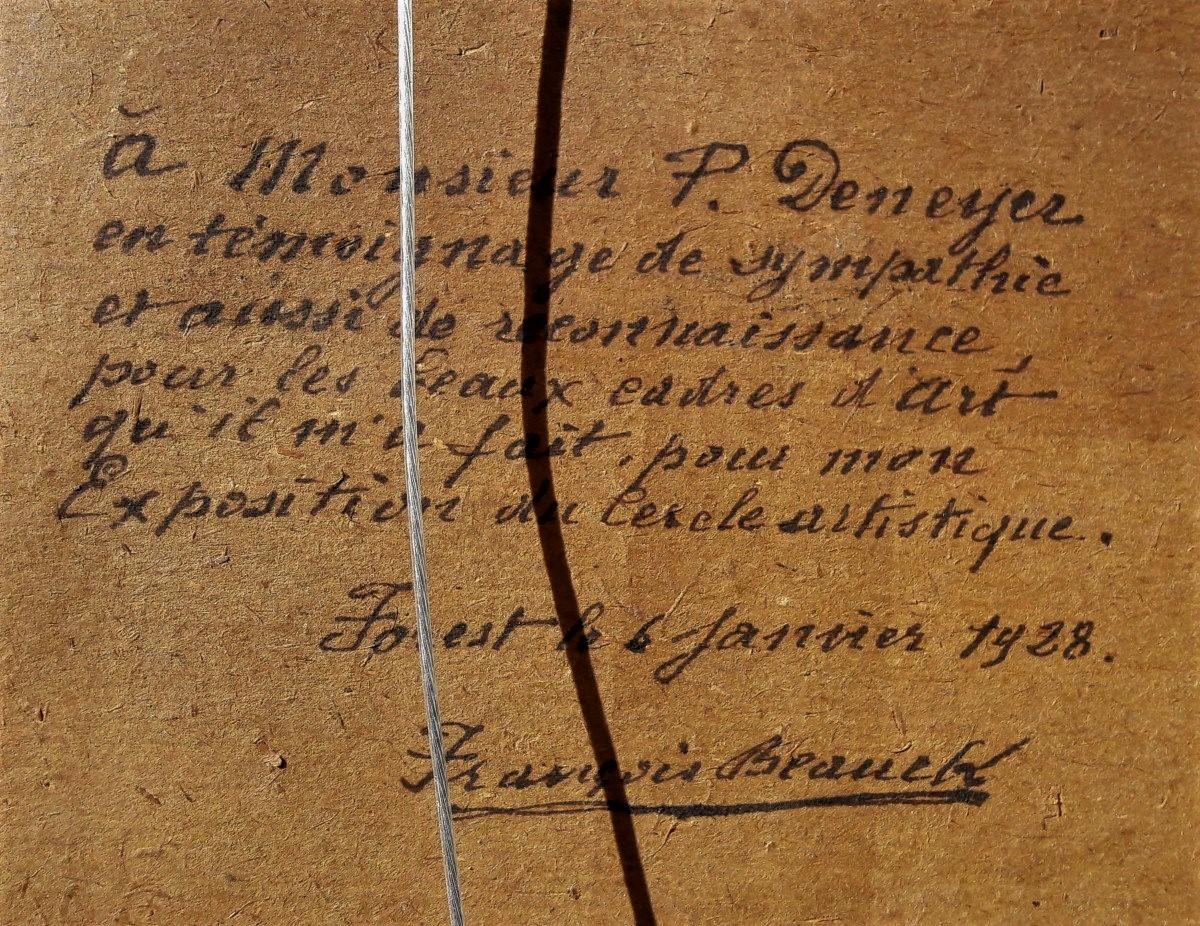 à Monsieur P. Deneyer
en témoignage de sympathie
et aussi de reconnaissance,
pour les beaux cadres d'art
qu'il m'a fait, pour mon
Exposition du Cercle artistique.
Forest le 6 Janvier 1928.
François Beauck